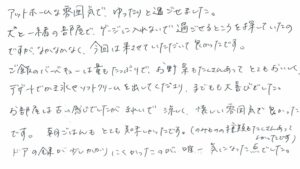 アットホームな雰囲気で、ゆったりと過ごせました。
犬と一緒の部屋で、ゲージに入れないで過ごせるところを探していたの
ですが、なかなかなく、今回は来させていただいて良かったです。
ご飯のバーベキューは量もたっぷりで、お野菜もたくさんあってとてもおいしく、
デザートでかき氷やソフトクリームを出してくださり、子どもも大喜びでした。
お部屋は古い感じでしたが、きれいで涼しく、懐しい雰囲気で良かった
です。 朝ごはんもとても美味しかったです。(のみものの種類もたくさんあって
よかったです)
ドアの金具が少しかかりにくかったのが、唯一気になった点でした。